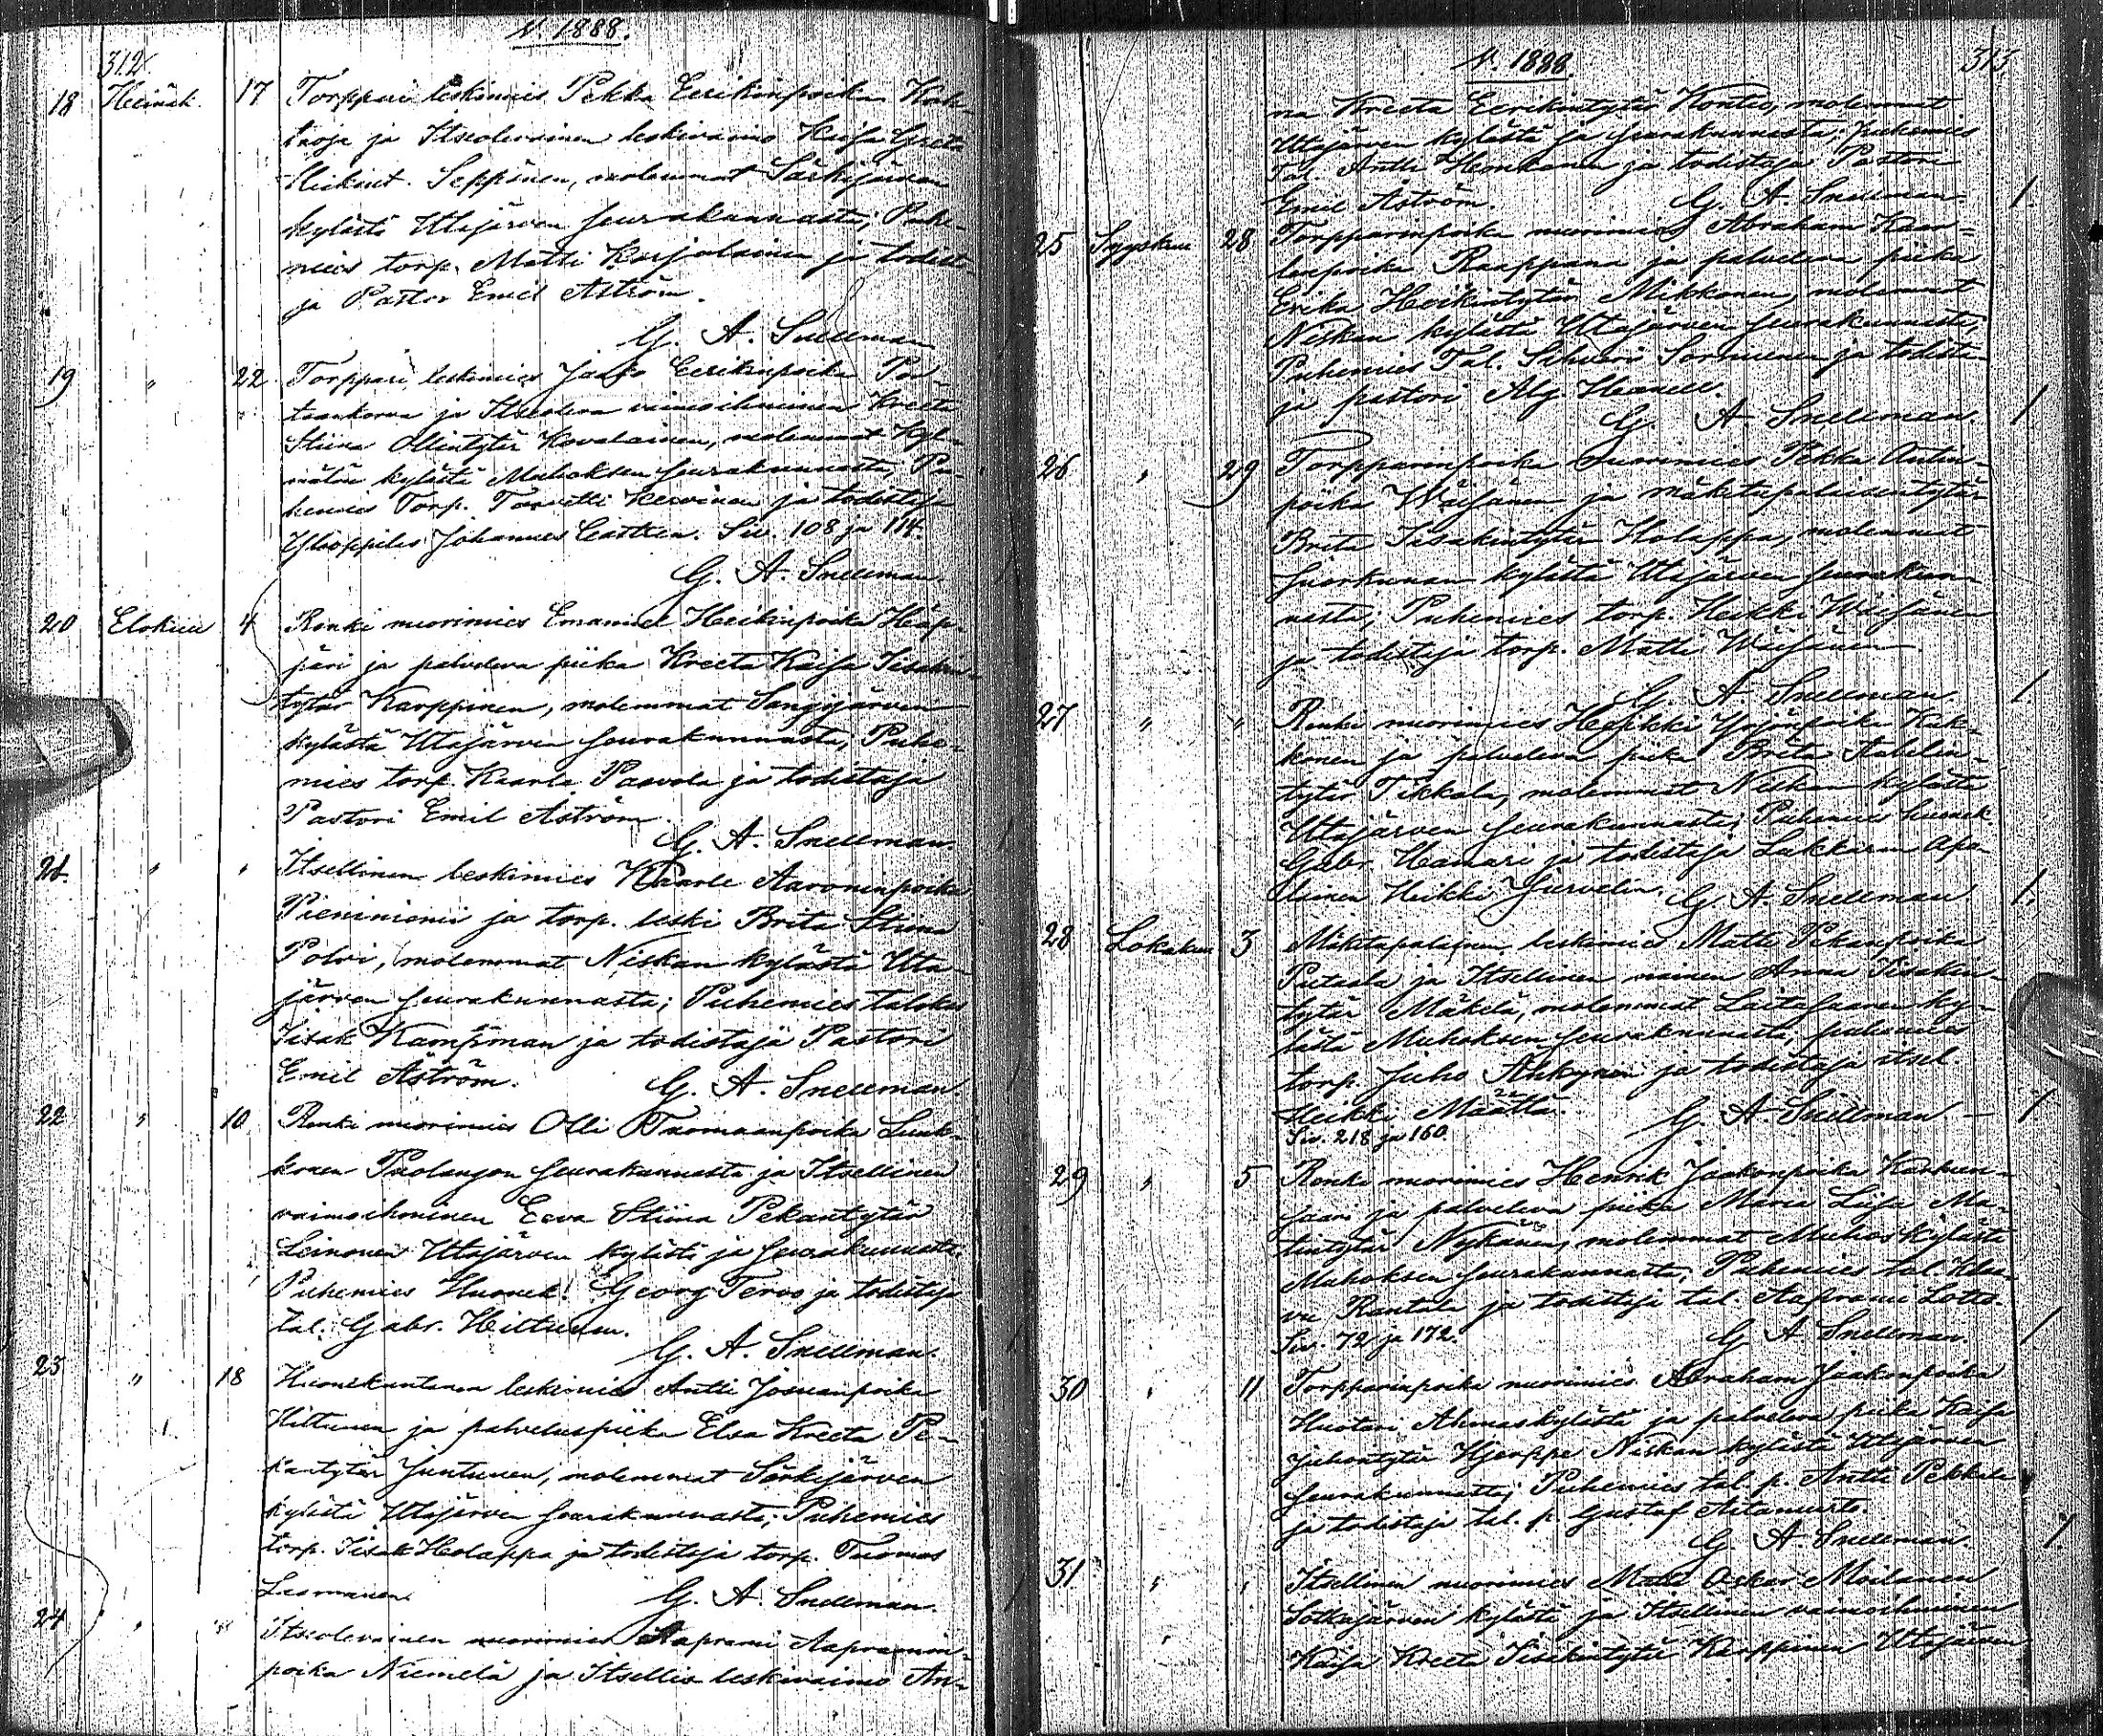 V. 1888.
312
18 Heinäk. 17 Torppari leskimies Pekka Eerikinpoika
ja Itseolevainen leskivaimo Kaisa Greta
Heikint. Seppänen, molemmat Särkijärven
kylästä Utajärven seurakunnasta; Puhe-
mies torp. Matti Karjalainen ja todista-
ja Pastor Emil Aström.
G. A. Snellman
19 " 22 Torppari leskimies Jaako Eerikinpoika
ja Itseoleva vaimoihminen Kreeta
Stiina Ollintytär Kovalainen, molemmat Kyl-
mälän kylästä Muhoksen seurakunnasta; Pu-
hemies Torp. Taavetti Kervinen ja todistaja
Ylioppilas Johannes Castrén. Siv. 108 ja 114.
G. A. Snellman.
20 Elokuu 4 Renki nuorimies Emanuel Heikinpoika Hää-
ja palveleva piika Kreeta Kaisa Iisakin-
tytär Karppinen, molemmat Sangijärven
kylästä Utajärven seurakunnasta, Puhe-
mies torp. Kaarle Paavola ja todistaja
Pastori Emil Aström.
G. A. Snellman.
21. " " Itsellinen leskimies Kaarle Aaronenpoika
Pieniniemi ja torp. leski Brita Stina
Polvi, molemmat Niskan kylästä Uta-
järven seurakunnasta; Puhemies talokas
Iisak Kämpman ja todistaja Pastori
Emil Åström.
G. A. Snellman.
22 " 10 Renki nuorimies Olli Tuomaanpoika Luuk-
konen Puolangon seurakunnasta ja Itsellinen
vaimoihminen Eeva Stiina Pekantytär
Leinonen Utajärven kylästä ja seurakunnasta;
Puhemies Huonek. Georg Tervo ja todistaja
tal. Gabr. Hiltunen.
G. A. Snellman.
23 " 18 Huonekuntanen leskimies Antti Josuanpoika
Hiltunen ja palveluspiika Elsa Kreeta Pe-
kantytär Juntunen, molemmat Särkijärven
kylästä Utajärven seurakunnasta; Puhemies
torp. Iisak Holappa ja todistaja torp. Tuomas
G. A. Snellman.
24 " " Itseolevainen nuorimies Aaprami Aapramin-
poika Niemelä ja Itsellis leskivaimo An-
V. 1888.
313
na Kreeta Eerikintytär Kontio, molemmat
Utajärven kylästä ja seurakunnasta; Puhemies
Tal. Antti Honkanen ja todistaja Pastori
Emil Åström. G. A. Snellman. 1.
25 Syyskuu 28 Torpparinpoika nuorimies Abraham Kaar-
lenpoika Raappana ja palveleva piika
Erika Heikintytär Mikkonen, molemmat
Niskan kylästä Utajärven seurakunnasta,
Puhemies Tal. Sorminen ja todista-
ja pastori Alg.
G. A. Snellman. 1
26 " 29 Torpparinpoika nuorimies Pekka Antin-
poika Wäisänen ja mäkitupalaisentytär
Brita Iisakintytär Holappa, molemmat
Juorkunan kylästä Utajärven seurakun-
nasta; Puhemies torp. Heikki Wäisänen
ja todistaja torp. Matti Wäisänen.
G. A. Snellman 1.
27 " " Renki nuorimies Heikki Yrjönpoika Kuk-
konen ja palveleva piika Brita
tytär Tikkala, molemmat Niskan kylästä
Utajärven seurakunnasta; Puhemies huonek.
Gabr. Hamari ja todistaja Lukkarin Apu-
lainen Heikki Jurvelin. G. A. Snellman 1.
28 Lokakuu 3 Mäkitupalainen leskimies Matti Pekanpoika
Putaala ja Itsellinen nainen Anna Iisakin-
tytär Mäkelä, molemmat Laitasaaren ky-
lästä Muhoksen seurakunnasta, puhemies
torp. Juho Ahkynen ja todistaja itsel.
Heikki Määttä. G. A. Snellman - 1
Siv. 218 ja 160.
29 " 5 Renki nuorimies Henrik Jaakonpoika Karhun-
saari ja palveleva piika Maria Liisa Ma-
tintytär Nykänen, molemmat Muhos kylästä
Muhoksen seurakunnasta; Puhemies tal.
Rantala ja todistaja tal. Aaprami
Siv. 72 ja 172. G. A. Snellman. 1
30 " 11 Torpparinpoika nuorimies Abraham Jaakonpoika
Huotari Ahmaskylästä ja palveleva piika Kaisa
Juhontytär Hjerppe Niskan kylästä Utajärven
seurakunnasta; Puhemies tal. p. Antti Pekkala
ja todistaja tal. p. Gustaf Aitamurto.
G. A. Snellman. 1.
31 " " Itsellinen nuorimies Matti Oskar Moilanen
Sotkajärven kylästä ja Itsellinen vaimoihminen
Kaisa Kreeta Iisakintytär Karppinen Utajärven